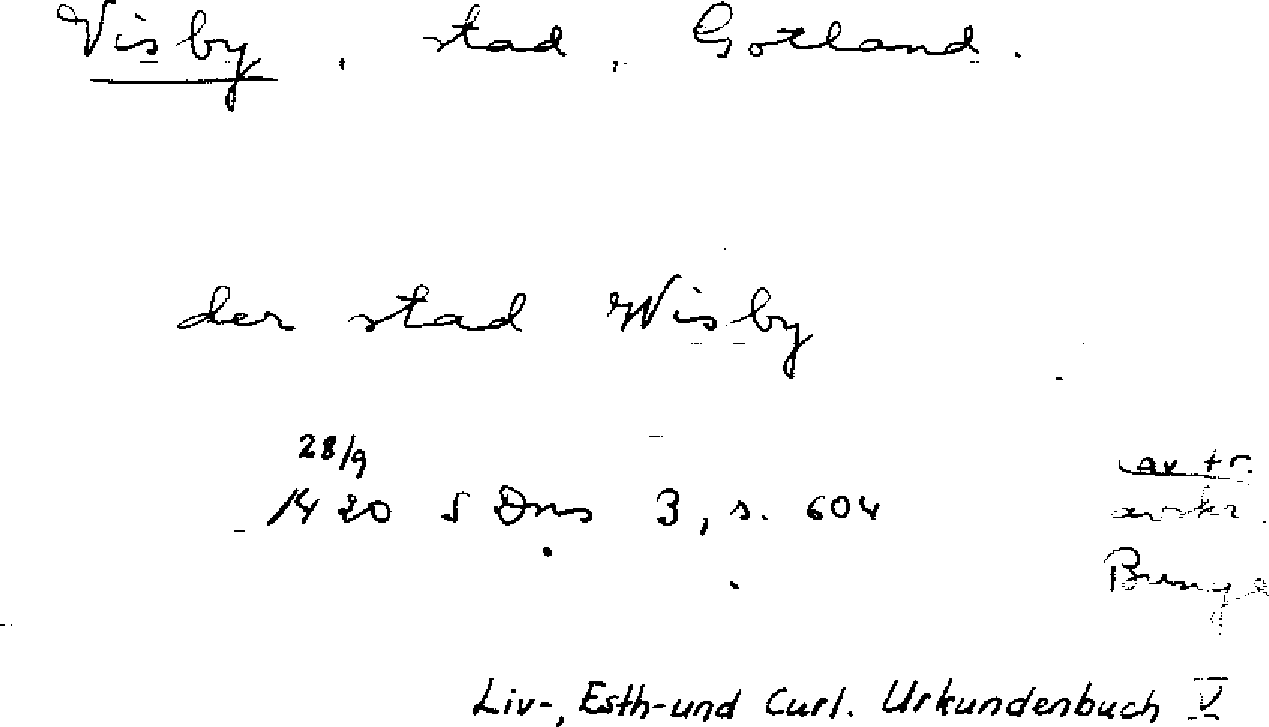 Visby, stad, Gotland.
der stad Wisby
28/9
1420 S Dns 3, s. 604
av tr.
Bunge
Liv-, Esth-und Curl. Urkundenbuch V